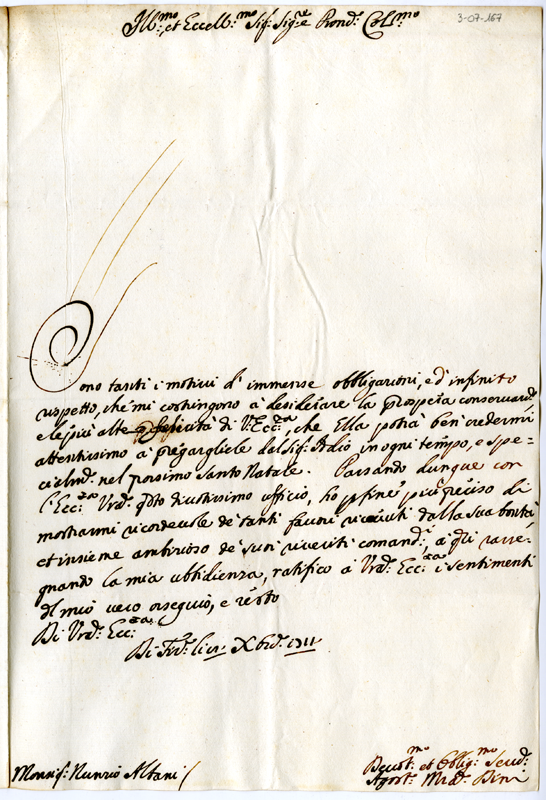 Ill:mo et Eccell:mo Sig: Sig:e Prone Col:mo
3-07-167
Sono tanti i motivi d' immense obbligazioni, e d' infinito
rispetto, che mi costringono à desiderare la prospera
e le più alte felicità di V: Ecc:za, che Ella potrà ben credermi
attentissimo à pregargliele dal Sig: Iddio in ogni tempo, e spe-
nel prossimo Santo Natale. Passando dunque con
l' Ecc:za Vra: questo divotissimo ufficio, ho per fine più preciso di
mostrarmi ricordevole de' tanti favori ricevuti dalla sua bontà,
et insieme ambizioso de' suoi riveriti comandi, a' quali rasse-
gnando la mia ubbidienza, ratifico à Vra: Ecc:za i sentimenti
del mio vero ossequio, e resto
Di Vra: Ecc:za
Di 1711
Monsig: Nunzio Albani
Devot:mo et Obblig:mo Serv: